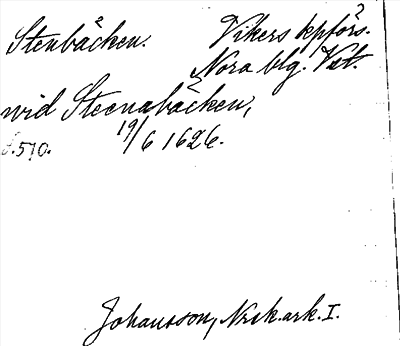 Stenbäcken. Vikers kpförs.
Nora blg. Vstm.
wid Steenabäcken,
s. 510. 19/6 1626.
Johansson, Nrsk.ark. I.